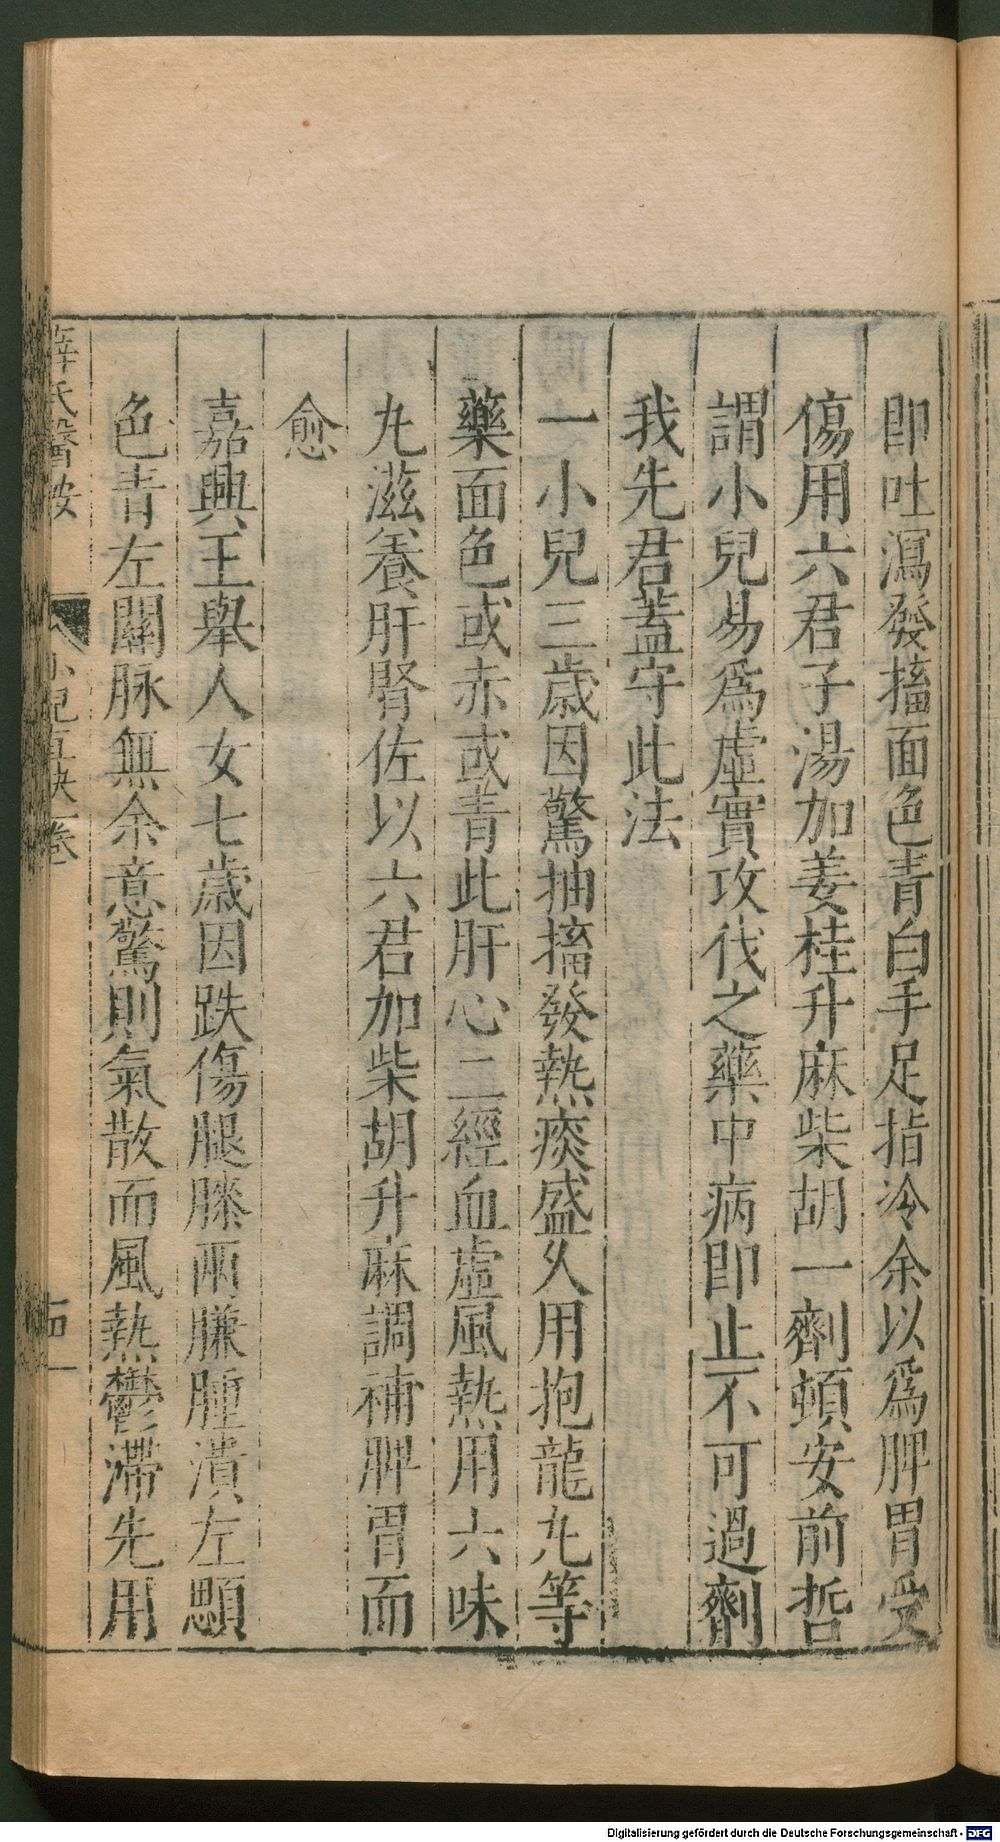 即吐瀉發搐面色青白手足指冷余以爲脾胃受
傷用六君子湯加姜桂升麻柴胡一劑頓安前哲
謂小兒易爲虛實攻伐之藥中病即止不可過劑
我先君蓋守此法
一小兒三歲因驚抽搐發熱痰盛久用抱龍丸等
藥面色或赤或青此肝心二經血虛風熱用六味
丸滋養肝腎佐以六君加柴胡升麻調補脾胃而
愈
嘉興王舉人女七歲因跌傷腿膝兩臁腫潰左顋
色青左關脉無余意驚則氣散而風熱鬱滯先用
薛氏醫按
小兒直訣卷一
十四
Digitalisierung gefördert durch die Deutsche Forschungsgemeinschaft - DFG